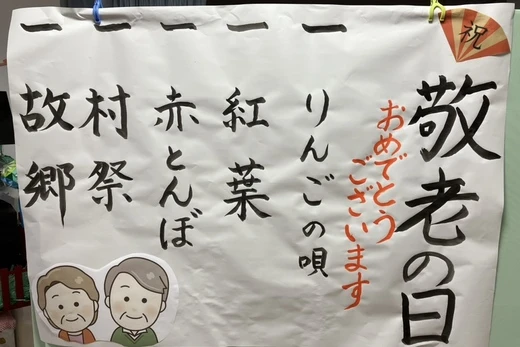 祝
敬老の日
おめでとう
ございます
一 りんごの唄
一 紅葉
一 赤とんぼ
一 村祭
一 故郷